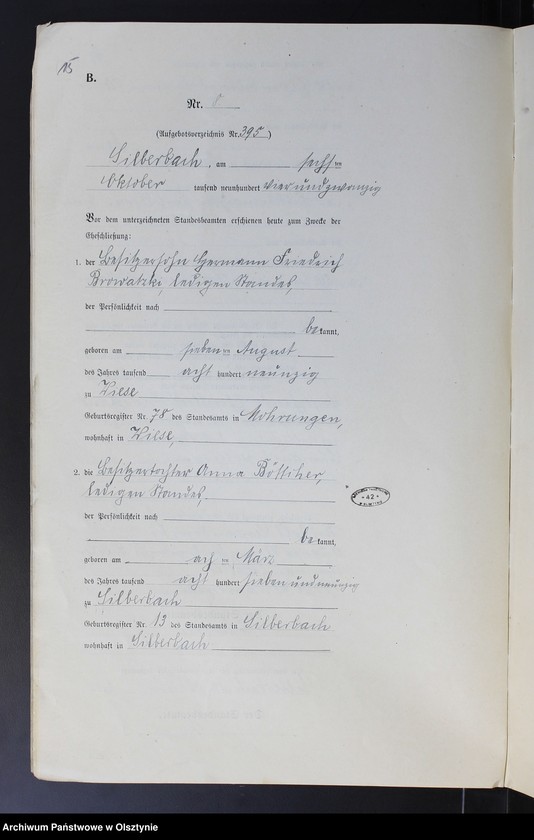 15
B.
Nr. 8
(Aufgebotsverzeichnis Nr. 395)
Silberbach, am sechsten
Oktober tausend neunhundert vierundzwanzig
Vor dem unterzeichneten Standesbeamten erschienen heute zum Zwecke der
Eheschließung:
1. der Besitzersohn Hermann Friedrich
Browatzki, ledigen Standes,
der Persönlichkeit nach
bekannt,
geboren am sieben ten August
des Jahres tausend acht hundert neunzig
zu Wiese
Geburtsregister Nr. 78 des Standesamts in Mohrungen,
wohnhaft in Wiese,
2. die Besitzertochter Anna Böttcher,
ledigen Standes,
der Persönlichkeit nach
bekannt,
geboren am ach ten März
des Jahres tausend acht hundert siebenundneunzig
zu Silberbach
Geburtsregister Nr. 13 des Standesamts in Silberbach
wohnhaft in Silberbach
* 42 *
Archiwum Państwowe w Olsztynie